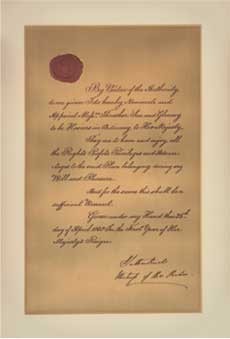 By Virtue of the Authority
to me given I do hereby Nominate and
Appoint Mess.rs Thresher, Son and Glenny
to be Hosiers in Ordinary to Her Majesty.
They are to have and enjoy all
the Rights Profits Privileges and
to the said Place belonging during my
Will and Pleasure.
And for the same this shall be a
sufficient Warrant.
Given under my Hand this
day of April in the Year of Her
Majesty's Reign.